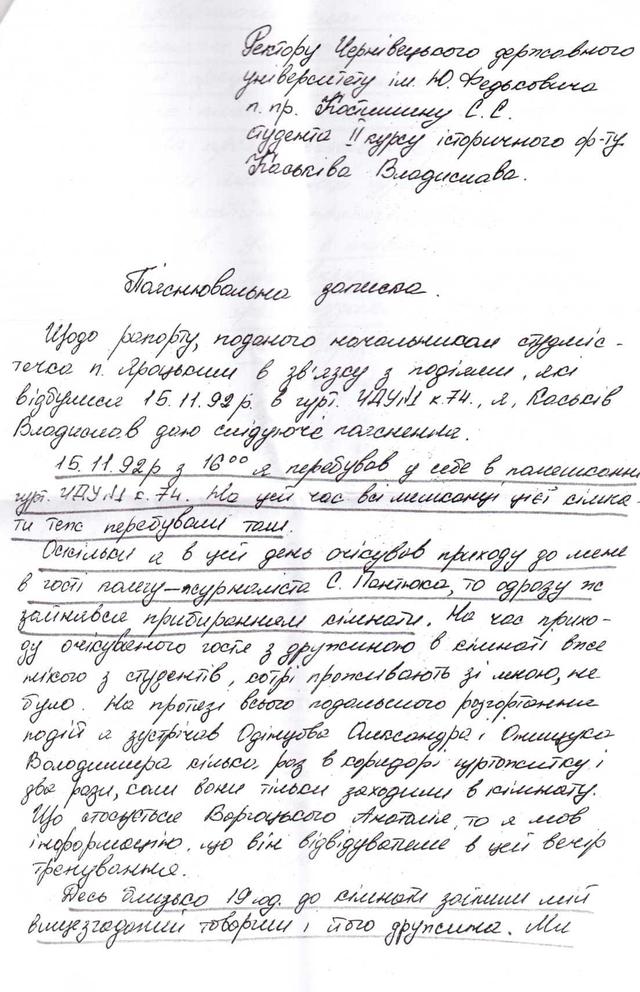 Ректору Чернівецького державного
університету ім. Ю. Федьковича
п. пр. Костишину С. С.
студента II курсу історичного ф-ту
Каськіва Владислава.
Пояснювальна записка.
Щодо рапорту, поданого начальником студміс-
течка п. Яроцьким в зв'язку з подіями, які
відбулися 15.11.92 р. в гурт. ЧДУ№1 к.74., я, Каськів
Владислав даю слідуюче пояснення.
15.11.92р з 16⁰⁰ я перебував у себе в помешканні
гурт. ЧДУ№1 к.74. На цей час всі мешканці цієї кімна-
ти теж перебували там.
Оскільки я в цей день очікував приходу до мене
в гості колегу-журналіста С. Пантюка, то одразу ж
зайнявся прибиранням кімнати. На час прихо-
ду очікуваного гостя з дружиною в кімнаті вже
нікого з студентів, котрі проживають зі мною, не
було. На протязі всього подальшого розгортання
подій я зустрічав Одінцова Олександра і Онищука
Володимира кілька раз в коридорі гуртожитку і
два рази, коли вони тільки заходили в кімнату.
Що стосується Воргацького Анатолія, то я мав
інформацію, що він відвідуватиме в цей вечір
тренування.
Десь близько 19 год. до кімнати зайшли мій
вищезгаданий товариш і його дружина. Ми